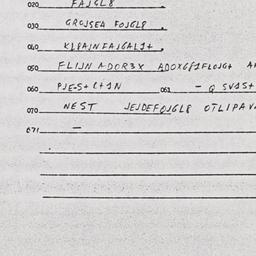 020 FAJGL8
030 GROJSEA FOJGL8.
040 KL8AJNFAJGAL1+.
050 FLIJN ADOR3X ADOXG81FLOJG+
060 PJE-S+ 061 - Q SV1S+
070 NEST JEJDEFOJGL8 OTLIPAV
071 -